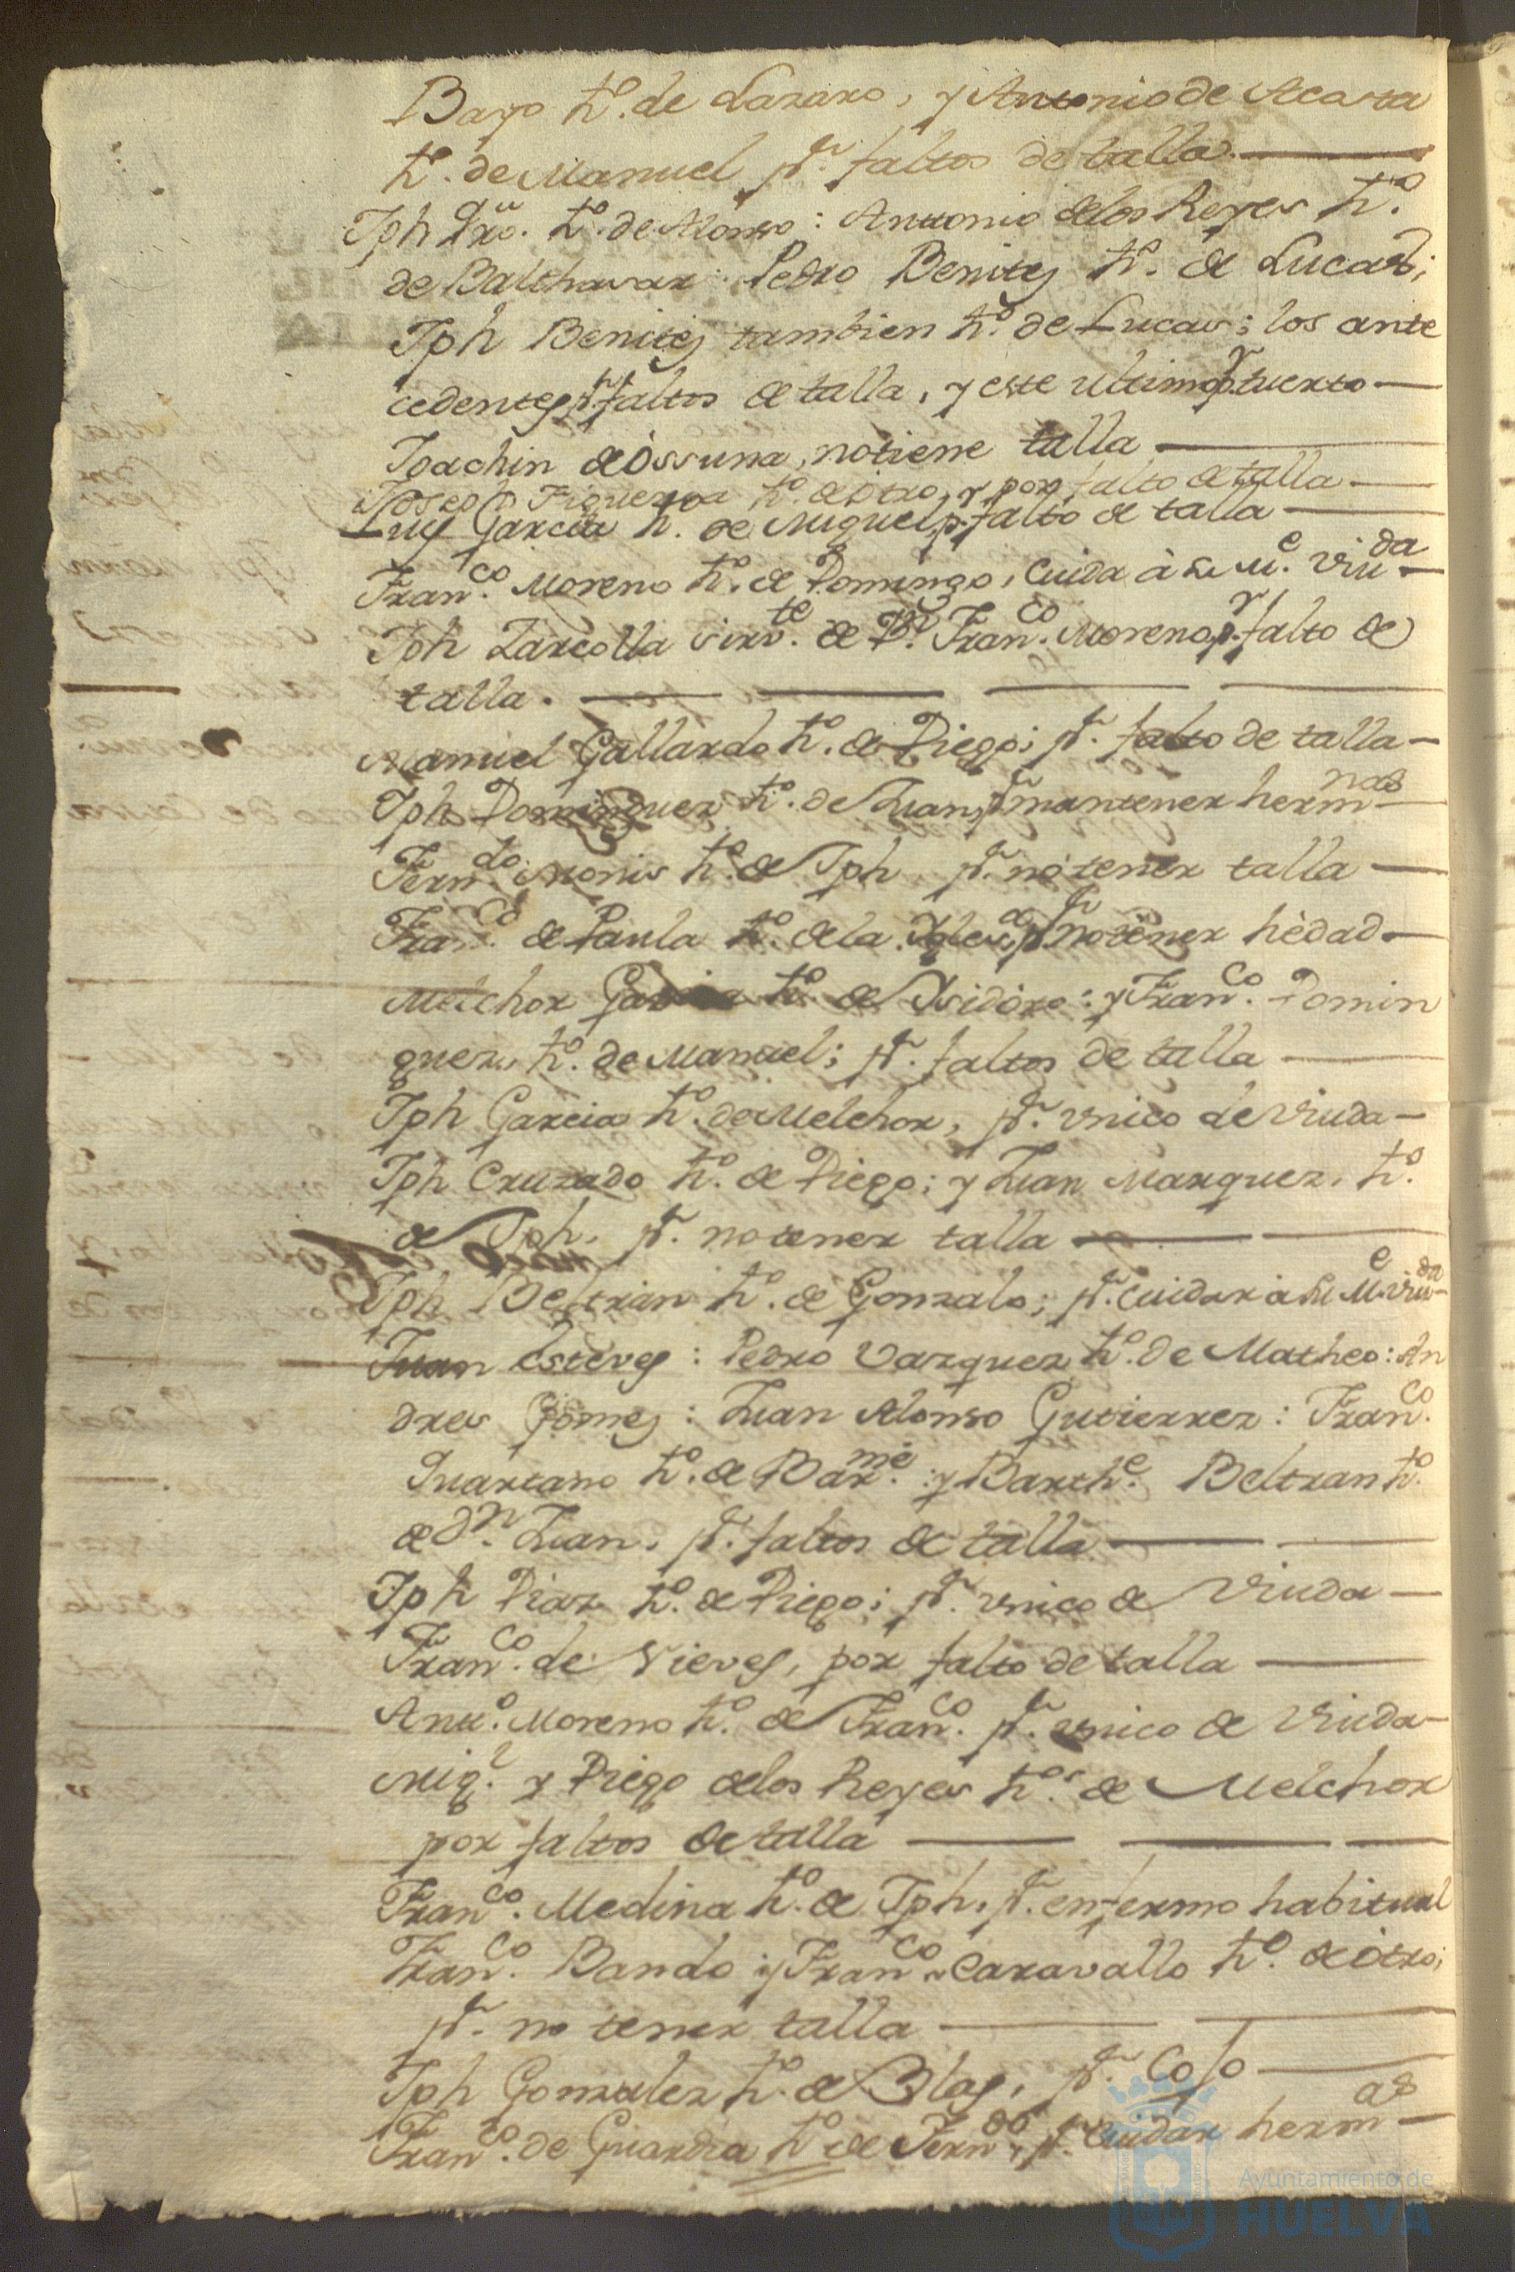 Bayo hº. de Lazaro, y Antonio de Acosta
hº. de Manuel pr. faltos de talla.
Jph hº. de Alonso: Antonio delos Reyes hº.
de Balthasar: Pedro Benites hº. de Lucas;
Jph Benites tambien hº. de Lucas; los ante
cedentes pr. faltos de talla, y este ultimo pr. tuerto
Joachin de Ossuna, no tiene talla
Joseph Figueroa hº. de otro, y por falto de talla
Luis Garcia hº. de Miguel, pr. falto de talla
Franco. Moreno hº. de Domingo, Cuida à su Me. Viuda
Jph Zarcolla sirvte. de Dn. Franco. Moreno, pr. falto de
talla.
Manuel Gallardo hº. de Diego; pr. falto de talla
Jph Dominguez hº. de Juan, pr. mantener hermnos
Ferndo. Monis hº. de Jph, pr. no tener talla
Franco. de Paula hº. dela Iglesa. pr. no tener hèdad
Melchor Garcia hº. de Isidoro: y Franco. Domin
guez, hº. de Manuel; pr. faltos de talla
Jph Garcia hº. de Melchor, pr. vnico de Viuda
Jph Cruzado hº. de Diego; y Juan Marquez, hº.
de Jph, pr. no tener talla
Jph Beltran hº. de Gonzalo; pr. cuidar a su Me. Viuda
Juan Esteves: Pedro Vazquez hº. de Matheo: An
dres Gomes: Juan Alonso Gutierrez: Franco.
Quartano hº. de Barme.: y Barthe. Beltran hº.
de Dn. Juan, pr. faltos de talla
Jph Diaz hº. de Diego; pr. vnico de Viuda
Franco. de Nieves, por falto de talla
Antº. Moreno hº. de Franco. pr. vnico de Viuda
Migl. y Diego delos Reyes hºs. de Melchor
por faltos de talla
Franco. Medina hº. de Jph, pr. enfermo habitual
Franco. Bando y Franco. Caravallo hº. de otro;
pr. no tener talla
Jph Gonzalez hº. de Blas, pr. Cojo
Franco. de Guardia hº. de Ferndo., pr. Cuidar hermas
Ayuntamiento de
HUELVA